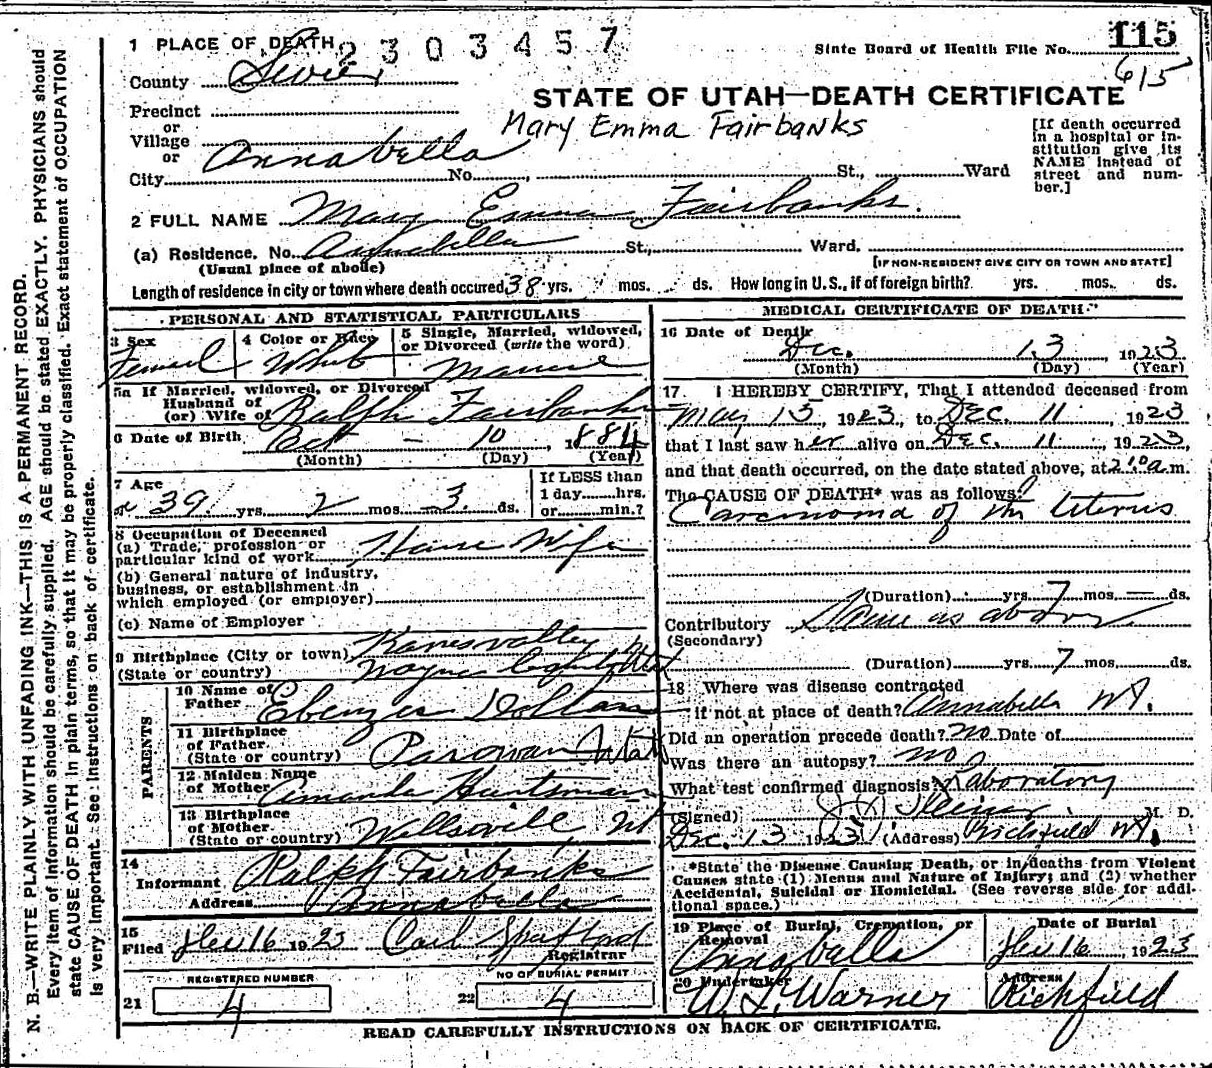 1 PLACE OF DEATH 2303457
State Board of Health File No. 115
615
County Sevier
STATE OF UTAH—DEATH CERTIFICATE
Mary Emma Fairbanks
Precinct
or
Village
or
City Annabella No. St., Ward
[If death occurred
in a hospital or in-
stitution give its
NAME instead of
street and num-
ber.]
2 FULL NAME Mary Emma Fairbanks.
(a) Residence. No. Annabella St., Ward.
(Usual place of abode) [IF NON-RESIDENT GIVE CITY OR TOWN AND STATE]
Length of residence in city or town where death occured 38 yrs. mos. ds. How long in U. S., if of foreign birth? yrs. mos. ds.
PERSONAL AND STATISTICAL PARTICULARS
3 Sex
4 Color or Race
5 Single, Married, widowed,
or Divorced (write the word)
5a If Married, widowed, or Divorced
Husband of
(or) Wife of Ralph Fairbanks
6 Date of Birth Oct – 10, 1884
(Month) (Day) (Year)
7 Age
39 yrs. 2 mos. 3 ds.
If LESS than
1 day hrs.
or min.?
8 Occupation of Deceased
(a) Trade, profession or
particular kind of work House Wife
(b) General nature of industry,
business, or establishment in
which employed (or employer)
(c) Name of Employer
9 Birthplace (City or town)
(State or country) Wayne County Utah
PARENTS
10 Name of
Father Ebenzer
11 Birthplace
of Father.
(State or country) Parowan Utah
12 Maiden Name
of Mother Amanda Huntsman
13 Birthplace
of Mother.
(State or country) Wellsville, Ut
14
Informant Ralph Fairbanks
Address Annabella
15
Filed Dec 16 1923 Carl Spafford
Registrar
REGISTERED NUMBER
21 4
NO OF BURIAL PERMIT
22 4
MEDICAL CERTIFICATE OF DEATH
16 Date of Death
Dec. 13, 1923
(Month) (Day) (Year)
17 I HEREBY CERTIFY, That I attended deceased from
May 13 1923, to Dec. 11, 1923
that I last saw her alive on Dec. 11, 1923,
and that death occurred, on the date stated above, at 2:10 a.m.
The CAUSE OF DEATH* was as follows:
Carcinoma of the Uterus
(Duration) yrs. 7 mos. — ds.
Contributory Same as above
(Secondary)
(Duration) yrs. 7 mos. ds.
18 Where was disease contracted
if not at place of death? Annabella Ut.
Did an operation precede death? no Date of
Was there an autopsy? no
What test confirmed diagnosis? Laboratory
(Signed) M. D.
Dec. 13 1923 (Address) Richfield Ut.
*State the Disease Causing Death, or in deaths from Violent
Causes state (1) Menus and Nature of Injury; and (2) whether
Accidental, Suicidal or Homicidal. (See reverse side for addi-
tional space.)
19 Place of Burial, Cremation, or
Removal
Annabella
Date of Burial
Dec 16, 1923
20 Undertaker
W. L. Warner
Address
Richfield
READ CAREFULLY INSTRUCTIONS ON BACK OF CERTIFICATE.
N. B.—WRITE PLAINLY WITH UNFADING INK—THIS IS A PERMANENT RECORD.
Every item of information should be carefully supplied. AGE should be stated EXACTLY. PHYSICIANS should
state CAUSE OF DEATH in plain terms, so that it may be properly classified. Exact statement of OCCUPATION
is very important. See instructions on back of certificate.